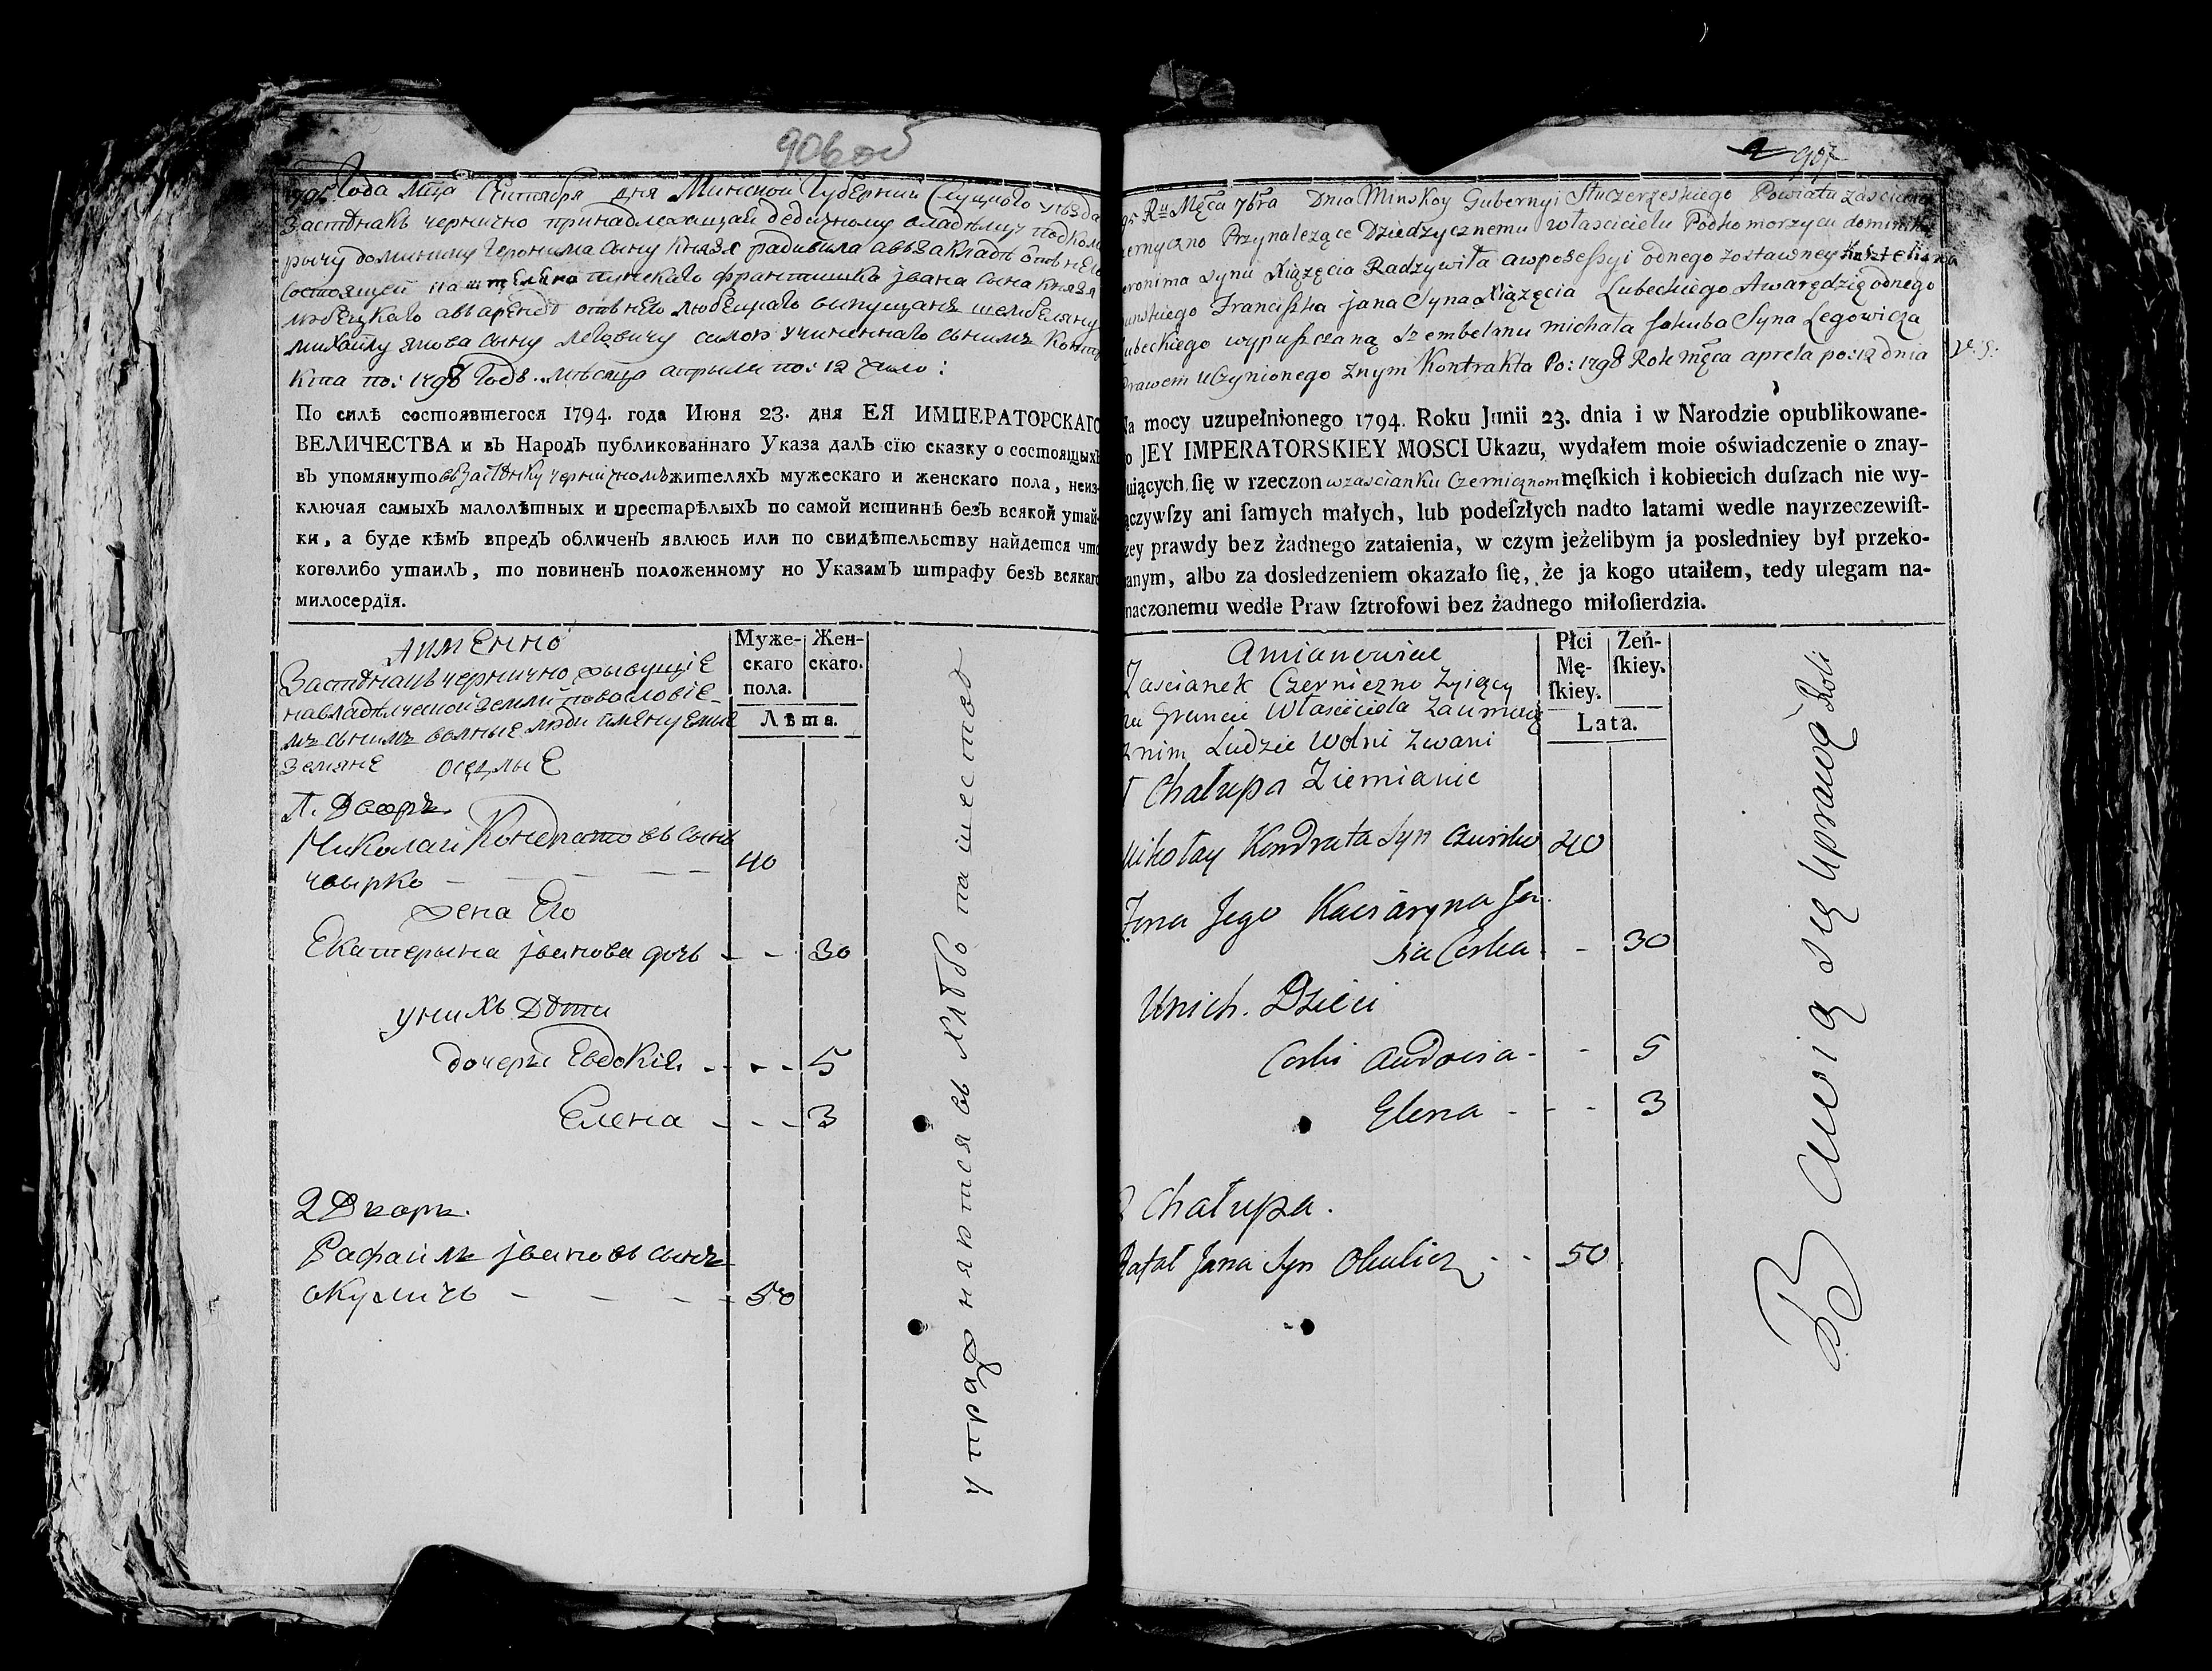 906 об
795 Года Мца Сентября дня Минской Губернии Слуцкого уѣзда
Застѣнакъ чернично принадлежащай дедичному владѣлцу подкомо
рычу доминику Геронима сыну Князя радивила авъ закладѣ отъ него
состоящей пинскаго франтишка јвана сына князя
любецкаго авъ арендѣ отъ него любецкаго выпущаня шембеляну
михайлу якова сыну леговичу силою учиненнаго сънимъ контр
кта по: 1798 Годъ мѣсяца апрыля по: 12 число:
По силѣ состоявшегося 1794. года Июня 23. дня ЕЯ ИМПЕРАТОРСКАГО
ВЕЛИЧЕСТВА и въ Народѣ публикованнаго Указа далъ сїю сказку о состоящихъ
въ упомянуто въ застѣнку черничномъ жителяхъ мужескаго и женскаго пола, неиз-
ключая самыхъ малолѣтных и престарѣлыхъ по самой истиннѣ безъ всякой утай-
ки, а буде кѣмъ впредь обличенъ явлюсь или по свидѣтельству найдется что
коголибо утаилъ, то повиненъ положенному по Указамъ штрафу безъ всякаго
милосердїя.
Муже- Жен-
скаго скаго.
пола.
Лѣта.
Аимѣнно
Застѣнацъ чернично живущіе
на владѣлческой земли по
мъ сънимъ волные люди имянуемые
земяне оседлые
1. Дворъ
Николай Кондратовъ сынъ
чвырко — — — — 40
жена Его
Екатерына јванова дочъ - - 30
унихъ Дѣти
дочеры Евдокія - - - 5
Елена - - - 3
2 Дворъ.
Рафаилъ јвановъ сынъ
окуличъ - - - - 50
упражняются въ хлѣбопашествѣ
907
95 Ru Męca 7bra Dnia Minskoy Gubernyi Słuczerzeskiego Powiatu Zascianek
zerniczno Przynalezące Dziedzycznemu włascicielu Podkomorzycu dominiku
eronima synu Xiązęcia Radzywiła awposessyi odnego zostawney Kasztelana
inskiego Franciszka jana Syna Xiązęcia Lubeckiego Awarędzię odnego
ubeckiego wypuszczaną Szembelanu michała jakuba Syna Legowicza
prawem uczynionego Znym Kontrakta Po: 1798 Rok męca aprela po: 12 dnia
Na mocy uzupełnionego 1794. Roku Junii 23. dnia i w Narodzie opublikowane-
o JEY IMPERATORSKIEY MOSCI Ukazu, wydałem moie oświadczenie o znay-
uiących się w rzeczon wzascianku Czernicznom męſkich i kobiecich duſzach nie wy-
ączywſzy ani ſamych małych, lub podeſzłych nadto latami wedle nayrzeczewiſt-
zey prawdy bez żadnego zataienia, w czym jeżelibym ja posledniey był przeko-
anym, albo za dosledzeniem okazało ſię, że ja kogo utaiłem, tedy ulegam na-
naczonemu wedle Praw ſztrofowi bez żadnego miłoſierdzia.
Płci Zeń-
Mę- ſkiey.
ſkiey.
Lata.
Amianowicie
Zascianek Czerniczno Zyiący
na Gruncie Własciciela Zaumową
znim Ludzie Wolni zwani
1 Chałupa Ziemianie
Mikołay Kondrata Syn Czwirko 40
Zona Jego Katarzyna Ja.
na Corka - - 30
Unich. Dzieci
Corki Audocia - - 5
Elena - - - 3
2 Chałupa.
Rafał Jana Syn Okulicz - - 50
Bawią się Uprawą Roli